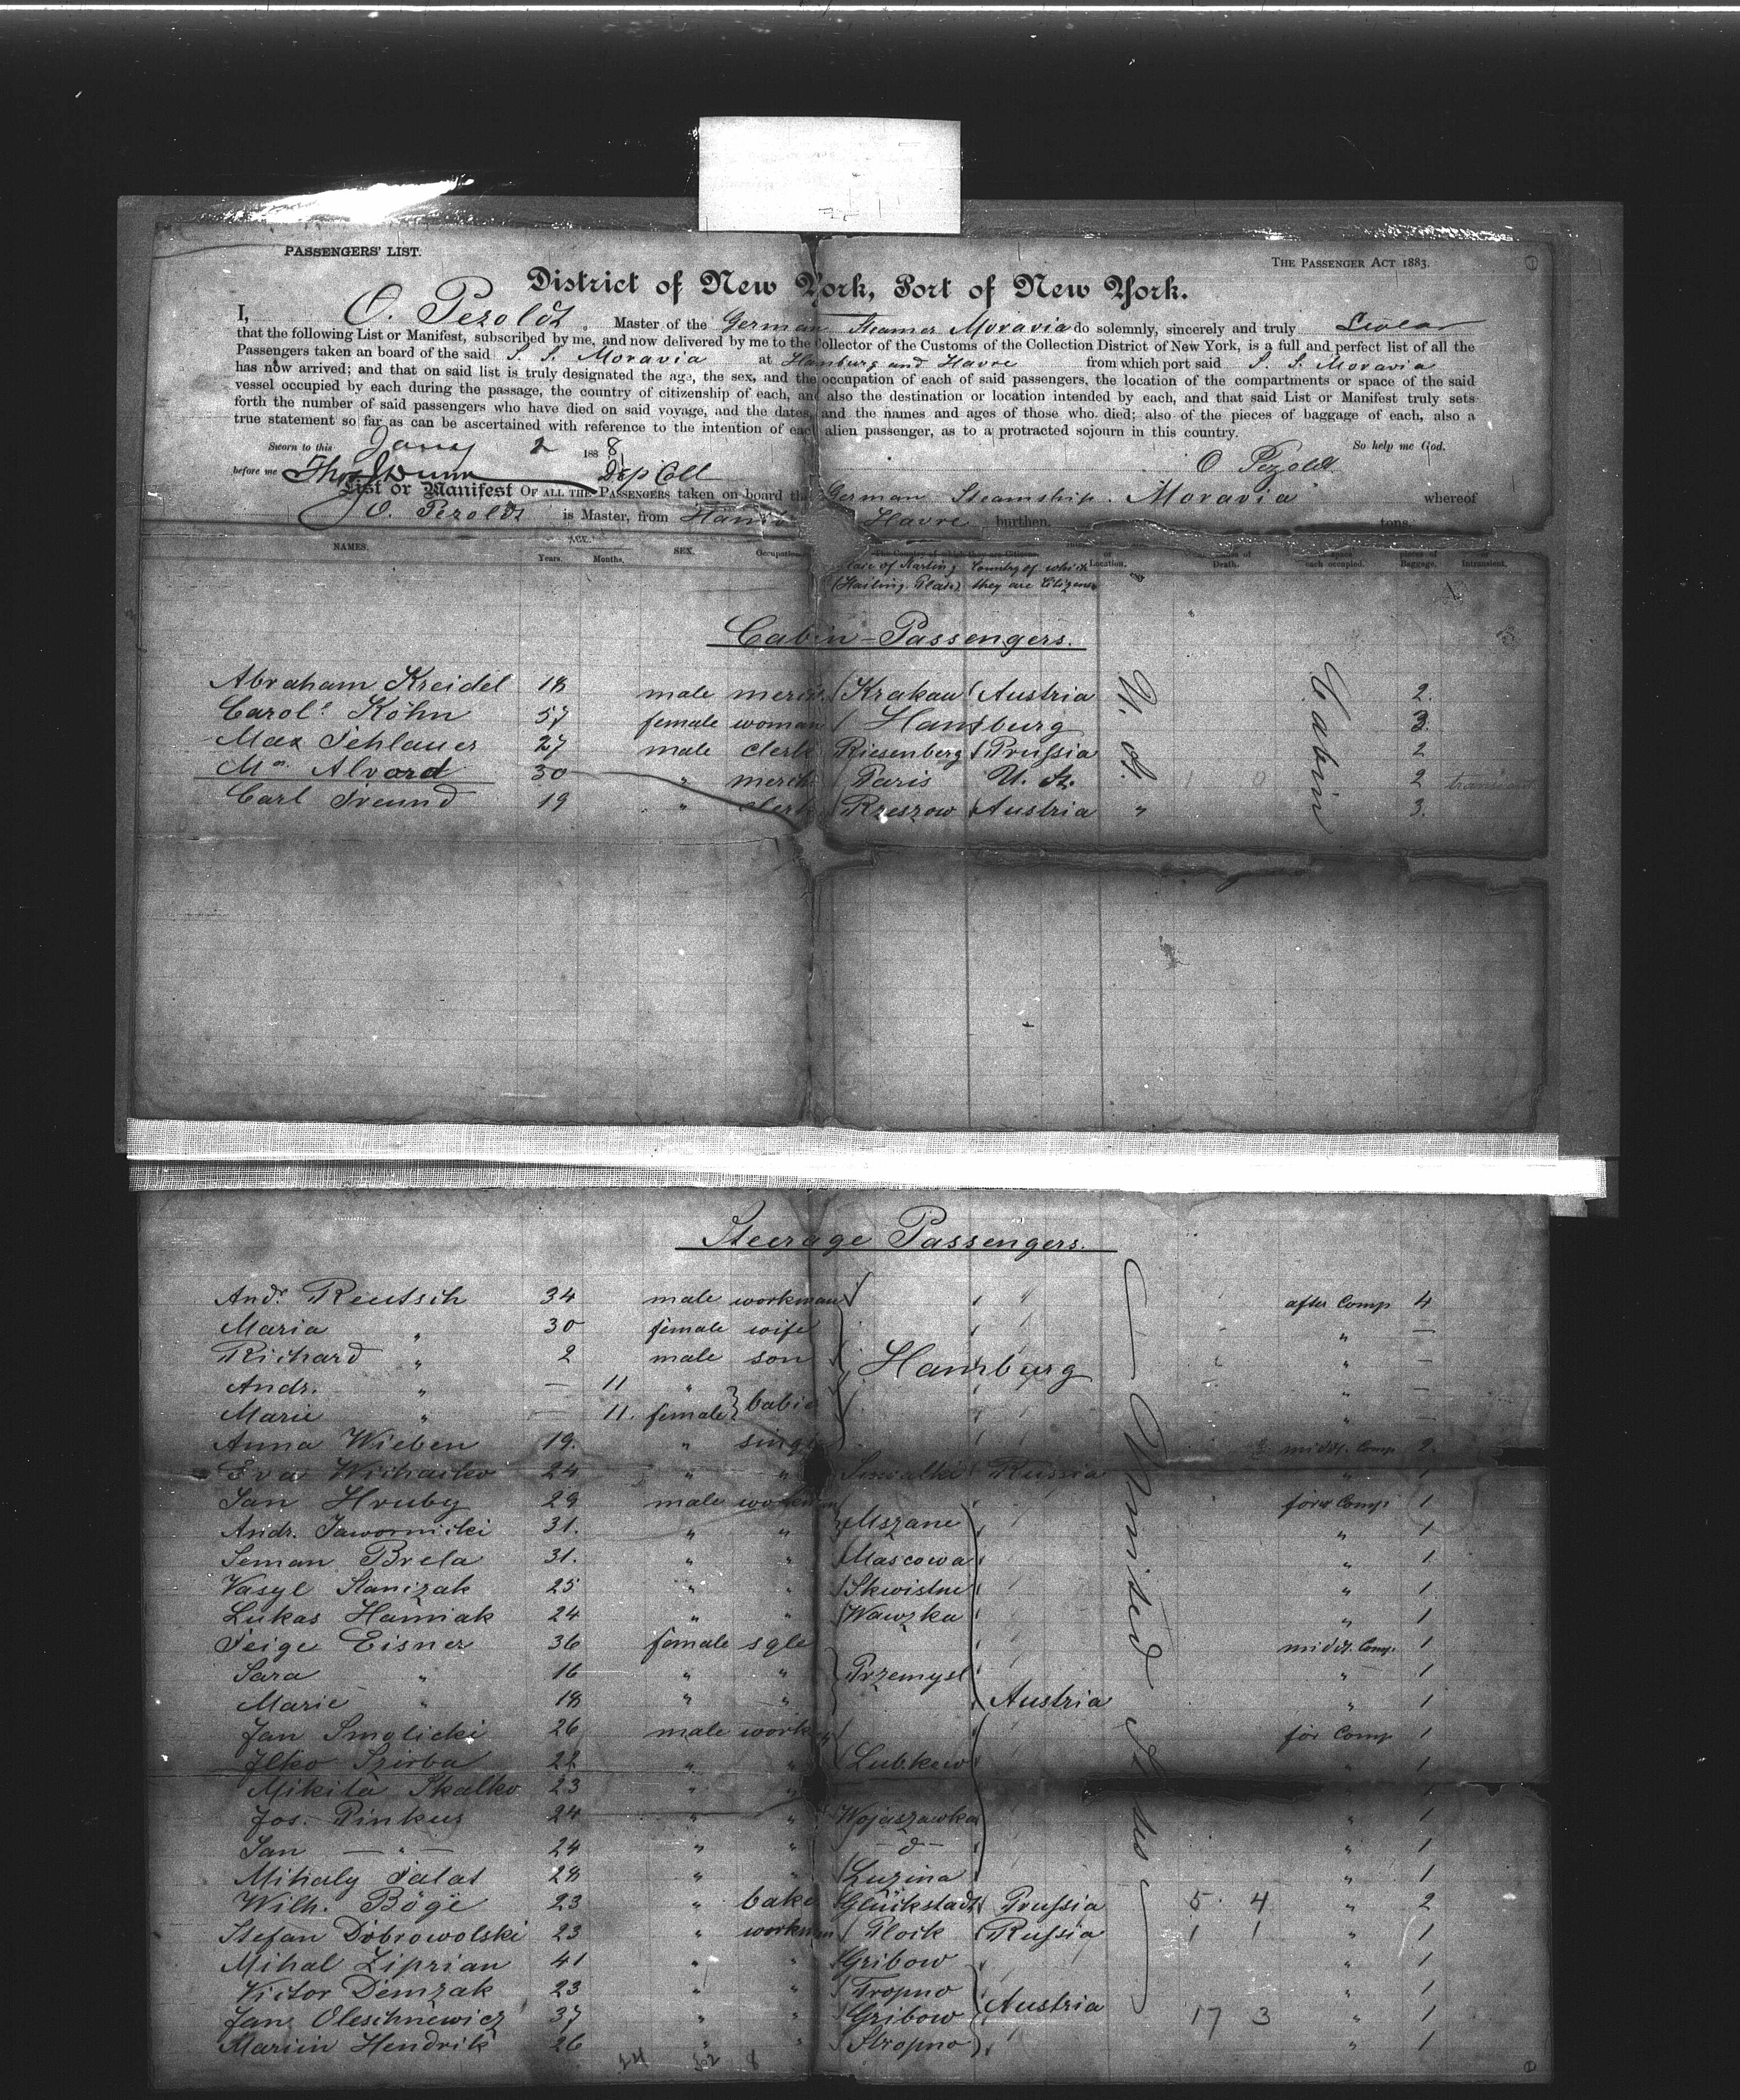 PASSENGERS' LIST.
THE PASSENGER ACT 1883.
District of New York, Port of New York.
I, O. Pezoldt, Master of the German Steamer Moravia do solemnly, sincerely and truly swear
that the following List or Manifest, subscribed by me, and now delivered by me to the Collector of the Customs of the Collection District of New York, is a full and perfect list of all the
Passengers taken an board of the said S. S. Moravia at Hamburg and Havre from which port said S. S. Moravia
has now arrived; and that on said list is truly designated the age, the sex, and the occupation of each of said passengers, the location of the compartments or space of the said
vessel occupied by each during the passage, the country of citizenship of each, and also the destination or location intended by each, and that said List or Manifest truly sets
forth the number of said passengers who have died on said voyage, and the dates, and the names and ages of those who died; also of the pieces of baggage of each, also a
true statement so far as can be ascertained with reference to the intention of each alien passenger, as to a protracted sojourn in this country.
Sworn to this Jany 2 1888 So help me God.
before me Dep Coll O Pezoldt
List or Manifest OF ALL THE PASSENGERS taken on board the German Steamship Moravia whereof
O. Pezoldt is Master, from Havre burthen tons.
NAMES. AGE. Years. Months. SEX. Occupation. The Country of which they are Citizens. Location. Death. space each occupied. pieces of Baggage. Intransient.
Country of which
(Hailing Place) they are Citizens
Cabin-Passengers.
Abraham Kreidel 18 male merch. Krakau Austria 2.
Carol. Köhn 57 female woman Hamburg 3.
Max Schlauer 27 male clerk Riesenberg Prussia 2
Alvord 30 " merch. Paris U. St. 2 transient
Carl Freund 19 " clerk Rzeszow Austria " 3.
U. S.
Cabin
Steerage Passengers.
Andr. Reutsch 34 male workman after Comp 4
Maria " 30 female wife " —
Richard " 2 male son Hamburg " —
Andr. " — 11 " " —
Marie " — 11. female babies " —
Anna Wieben 19. " single middl. Comp 2.
Eva 24 " " Suwalki Russia " 1
Jan Hruby 29 male workman forw Comp 1
Andr. Jawornicki 31. " " Mszane " 1
Seman Brela 31. " " Mascowa " 1
Vasyl Stanizak 25 " " Skwistne " 1
Lukas Hamiak 24 " " Wawzka " 1
Feige Eisner 36 female sgle middl. Comp. 1
Sara " 16 " " Przemysl " 1
Marie " 18 " " Austria " 1
Jan Smolicki 26 male workman for Comp 1
Ilko Szirba 22 " " Lubkow " 1
Mikita Skalko 23 " "
Jos. Pinkus 24 " " Wojaszawka " 1
Jan — " — 24 " " — d — " 1
Mihaly Falat 28 " " Luzina " 1
Wilh. Böge 23 " baker Glückstadt Prussia 5 4 " 2
Stefan Dobrowolski 23 " workman Plock Russia 1 1 " 1
Mihal Ziprian 41 " " Gribow " 1
Victor Demzak 23 " " Tropno " 1
Jan Oleschnewicz 37 " " Gribow Austria 17 3 " 1
Hendrik 26 " " Stropno " 1
United States